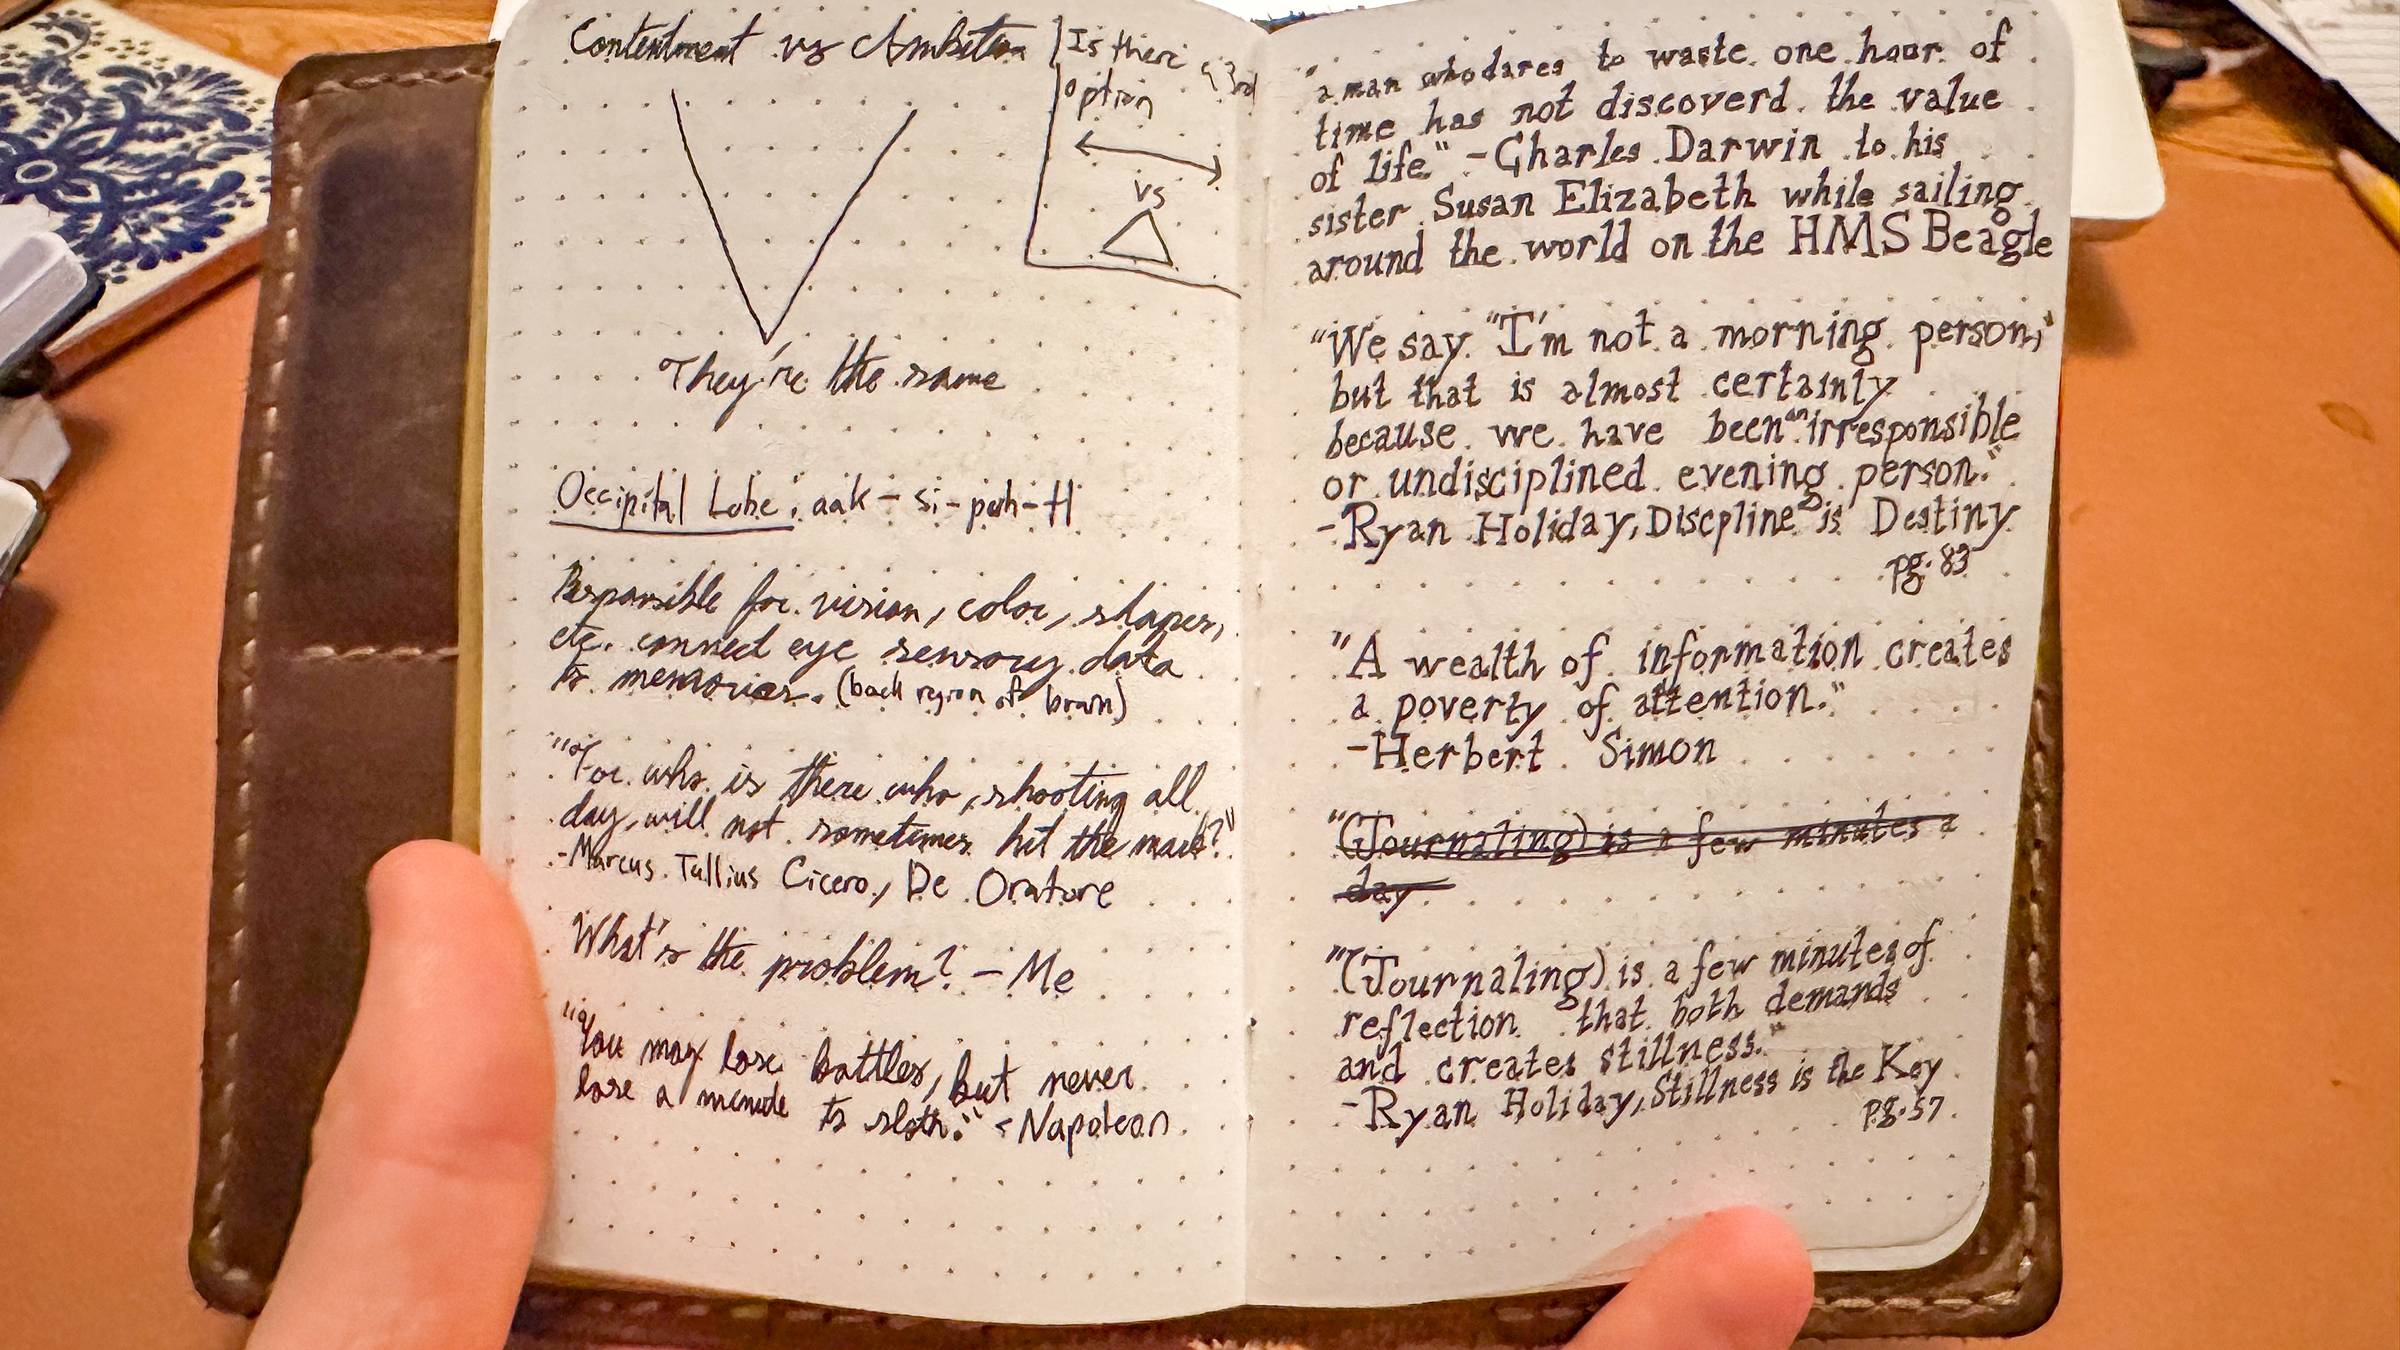 Contentment vs Ambition
Is there a 3rd
option
vs
They're the same
Occipital Lobe: aak-si-puh-tl
Responsible for vision, color, shapes,
etc. connect eye sensory data
to memories. (back region of brain)
"For who is there who, shooting all
day, will not sometimes hit the mark?"
-Marcus Tullius Cicero, De Oratore
What's the problem? - Me
"You may lose battles, but never
lose a minute to sloth." - Napoleon
"a man who dares to waste one hour of
time has not discoverd the value
of life." - Charles Darwin to his
sister Susan Elizabeth while sailing
around the world on the HMS Beagle
"We say "I'm not a morning person,"
but that is almost certainly
because we have been an irresponsible
or undisciplined evening person."
-Ryan Holiday, Discpline is Destiny
pg. 83
"A wealth of information creates
a poverty of attention."
-Herbert Simon
"(Journaling) is a few minutes a
day
"(Journaling) is a few minutes of
reflection that both demands
and creates stillness."
-Ryan Holiday, Stillness is the Key
pg. 57